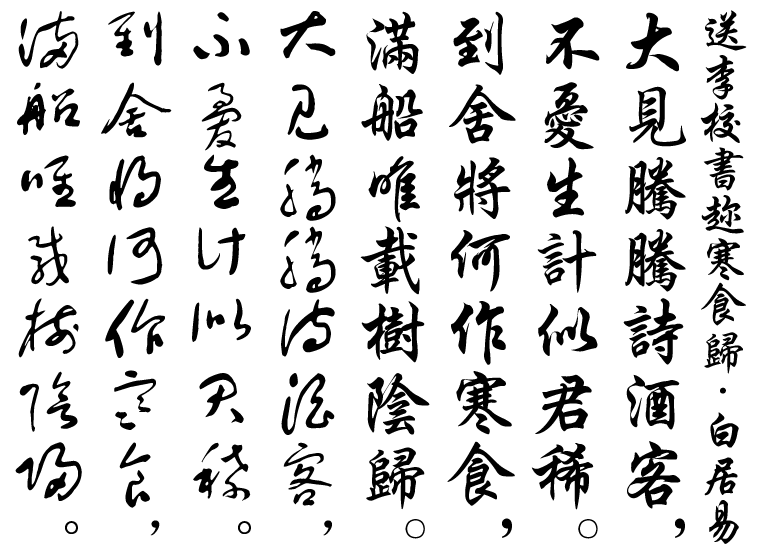 送李校書趂寒食歸·白居易
大見騰騰詩酒客，
不憂生計似君稀。
到舍將何作寒食，
滿船唯載樹陰歸。
大見騰騰詩酒客，
不憂生計似君稀。
到舍將何作寒食，
滿船唯載樹陰歸。